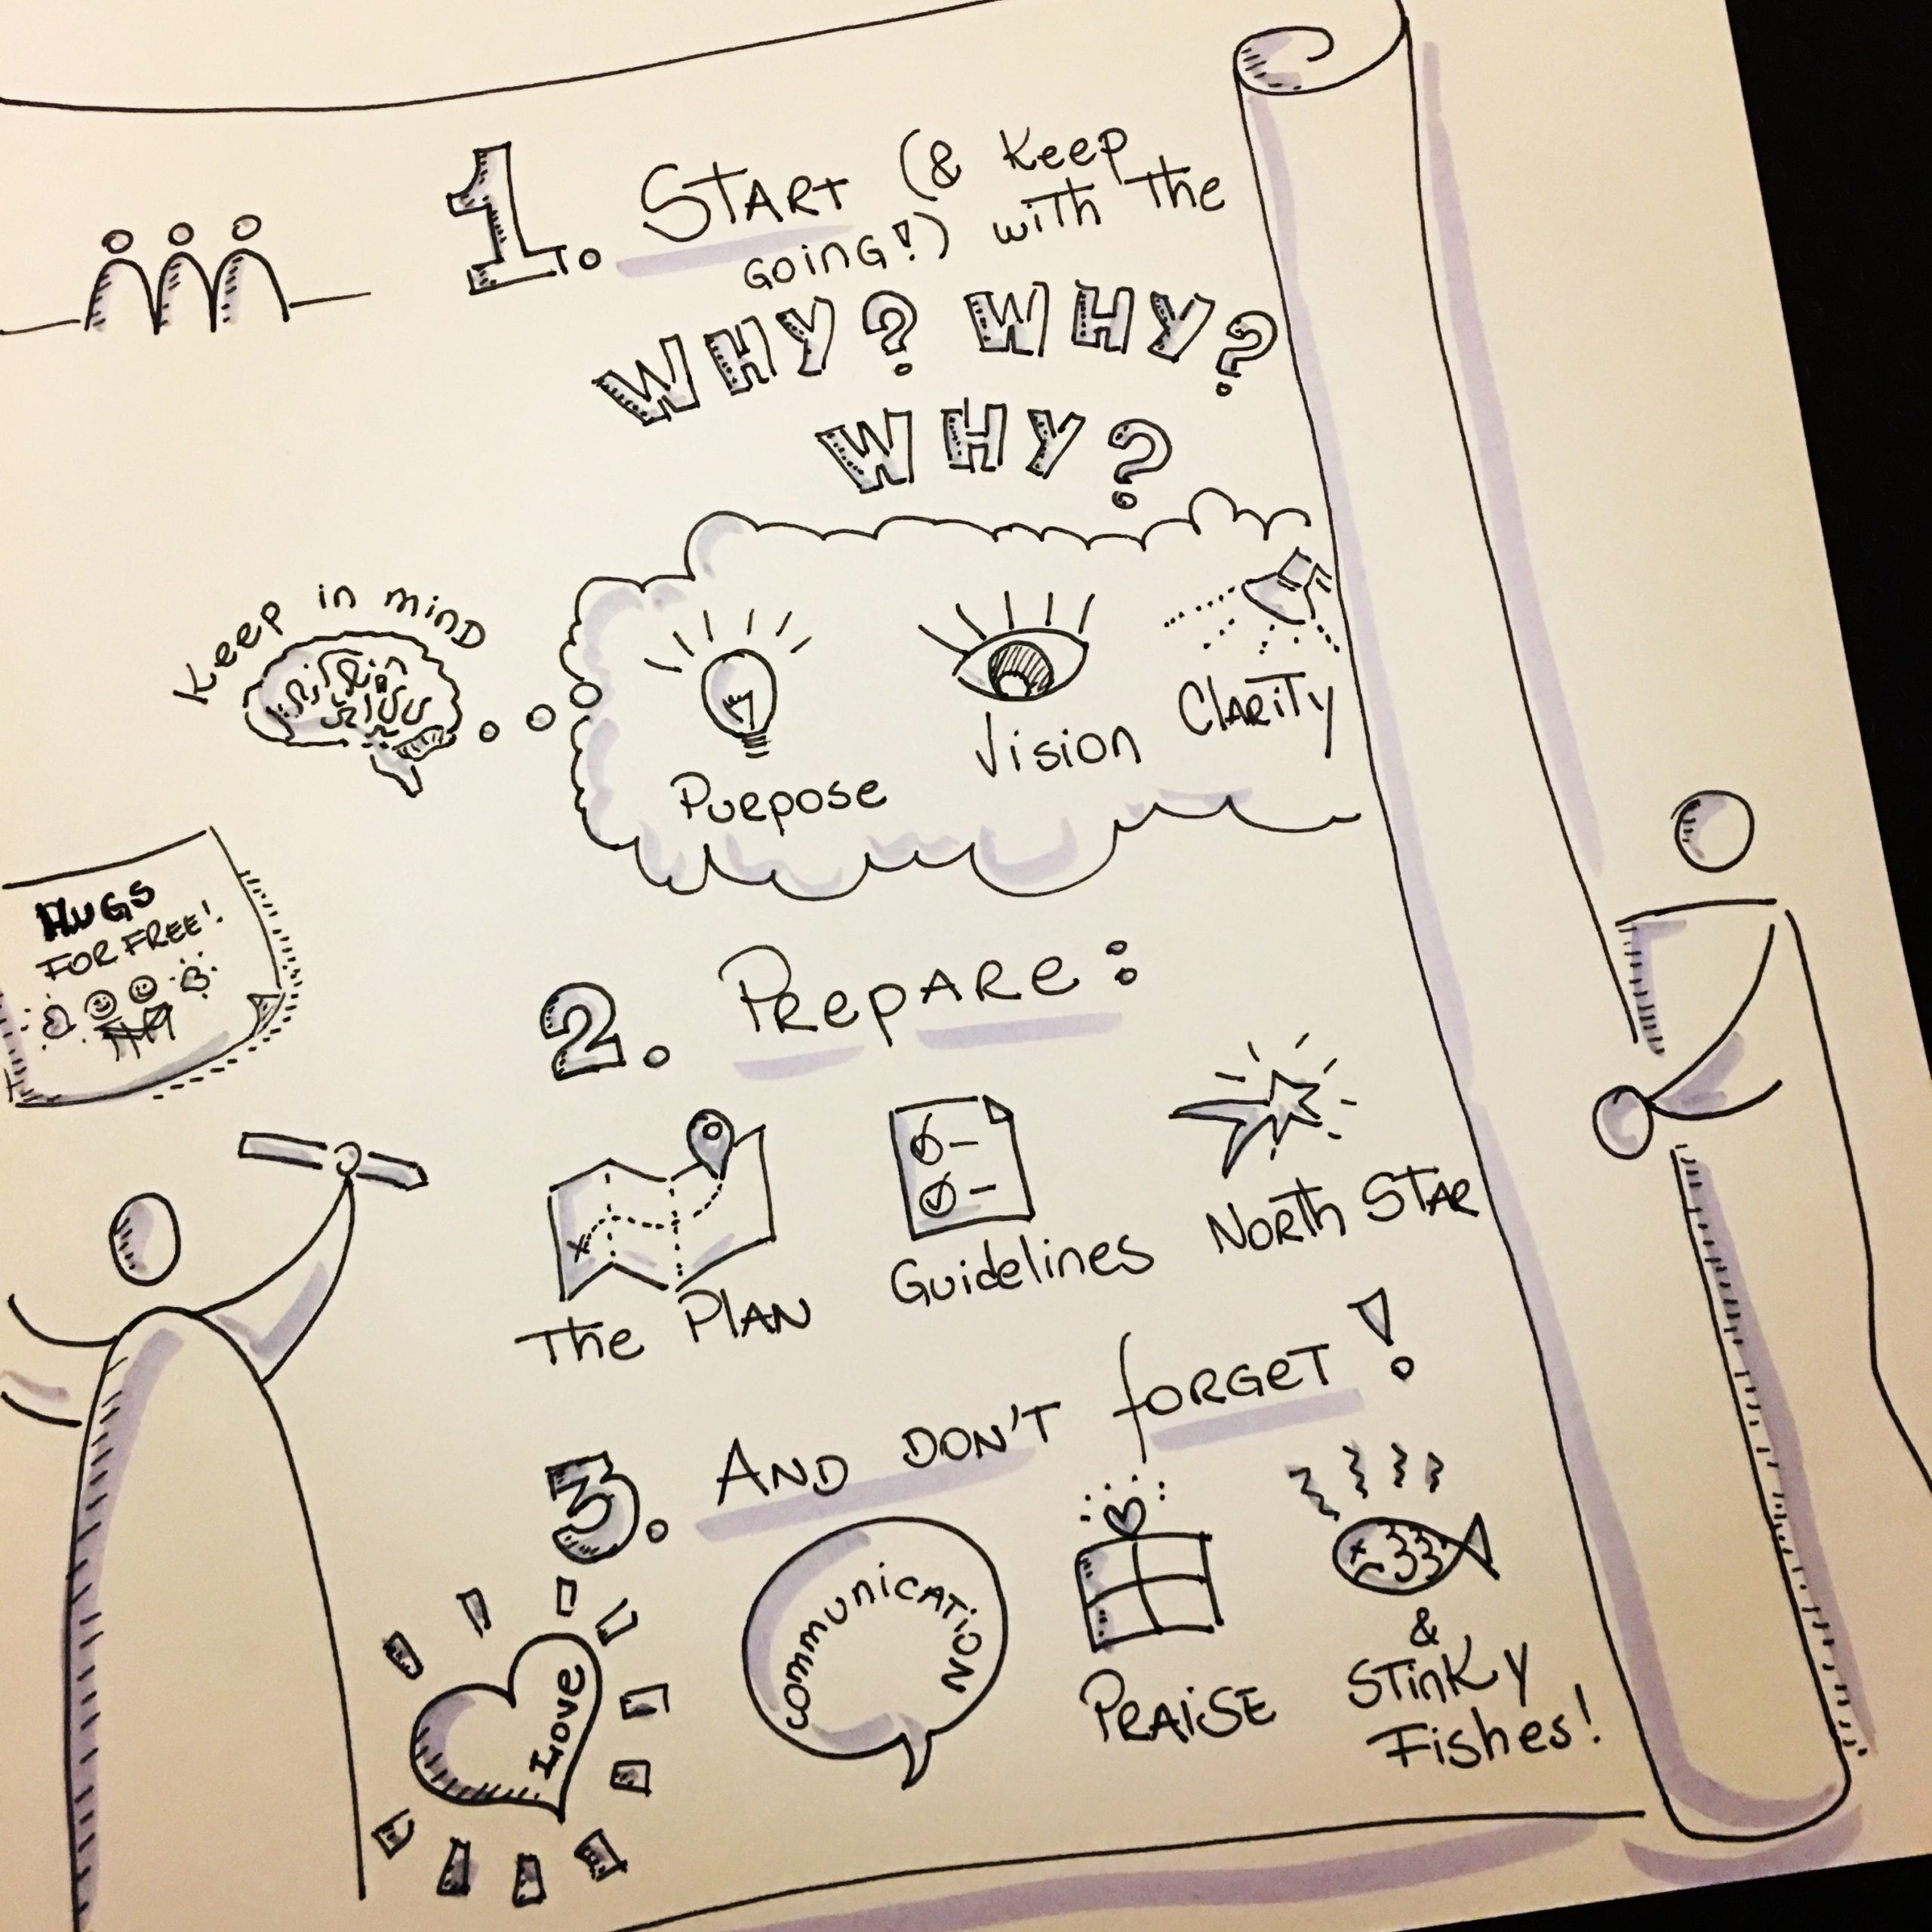 1. START (& Keep
GOING!) with The
WHY? WHY?
WHY?
Keep in mind
Purpose
Vision
Clarity
HUGS
FOR FREE!
2. Prepare:
The PLAN
Guidelines
North STAR
3. AND DON'T forget!
Love
communication
Praise
&
Stinky
Fishes!